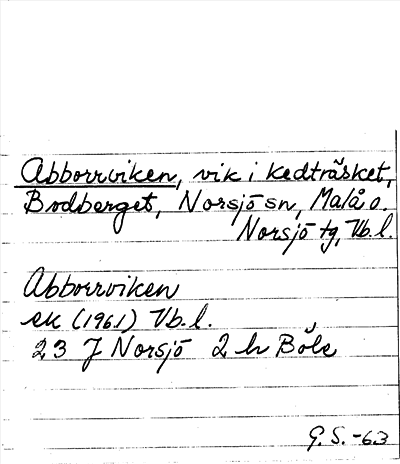 Abborrviken, vik i Kedträsket,
Bodberget, Norsjö sn, Malå o.
Norsjö tg, Vb.l.
Abborrviken
ek (1961) Vb.l.
23 J Norsjö 2 h Böle
G.S.-63